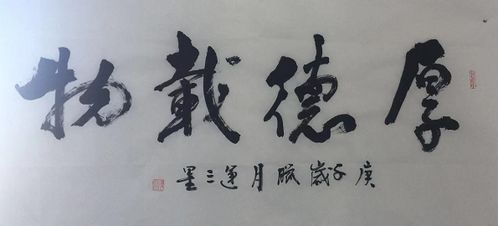 厚德載物
庚子歲臘月連三墨